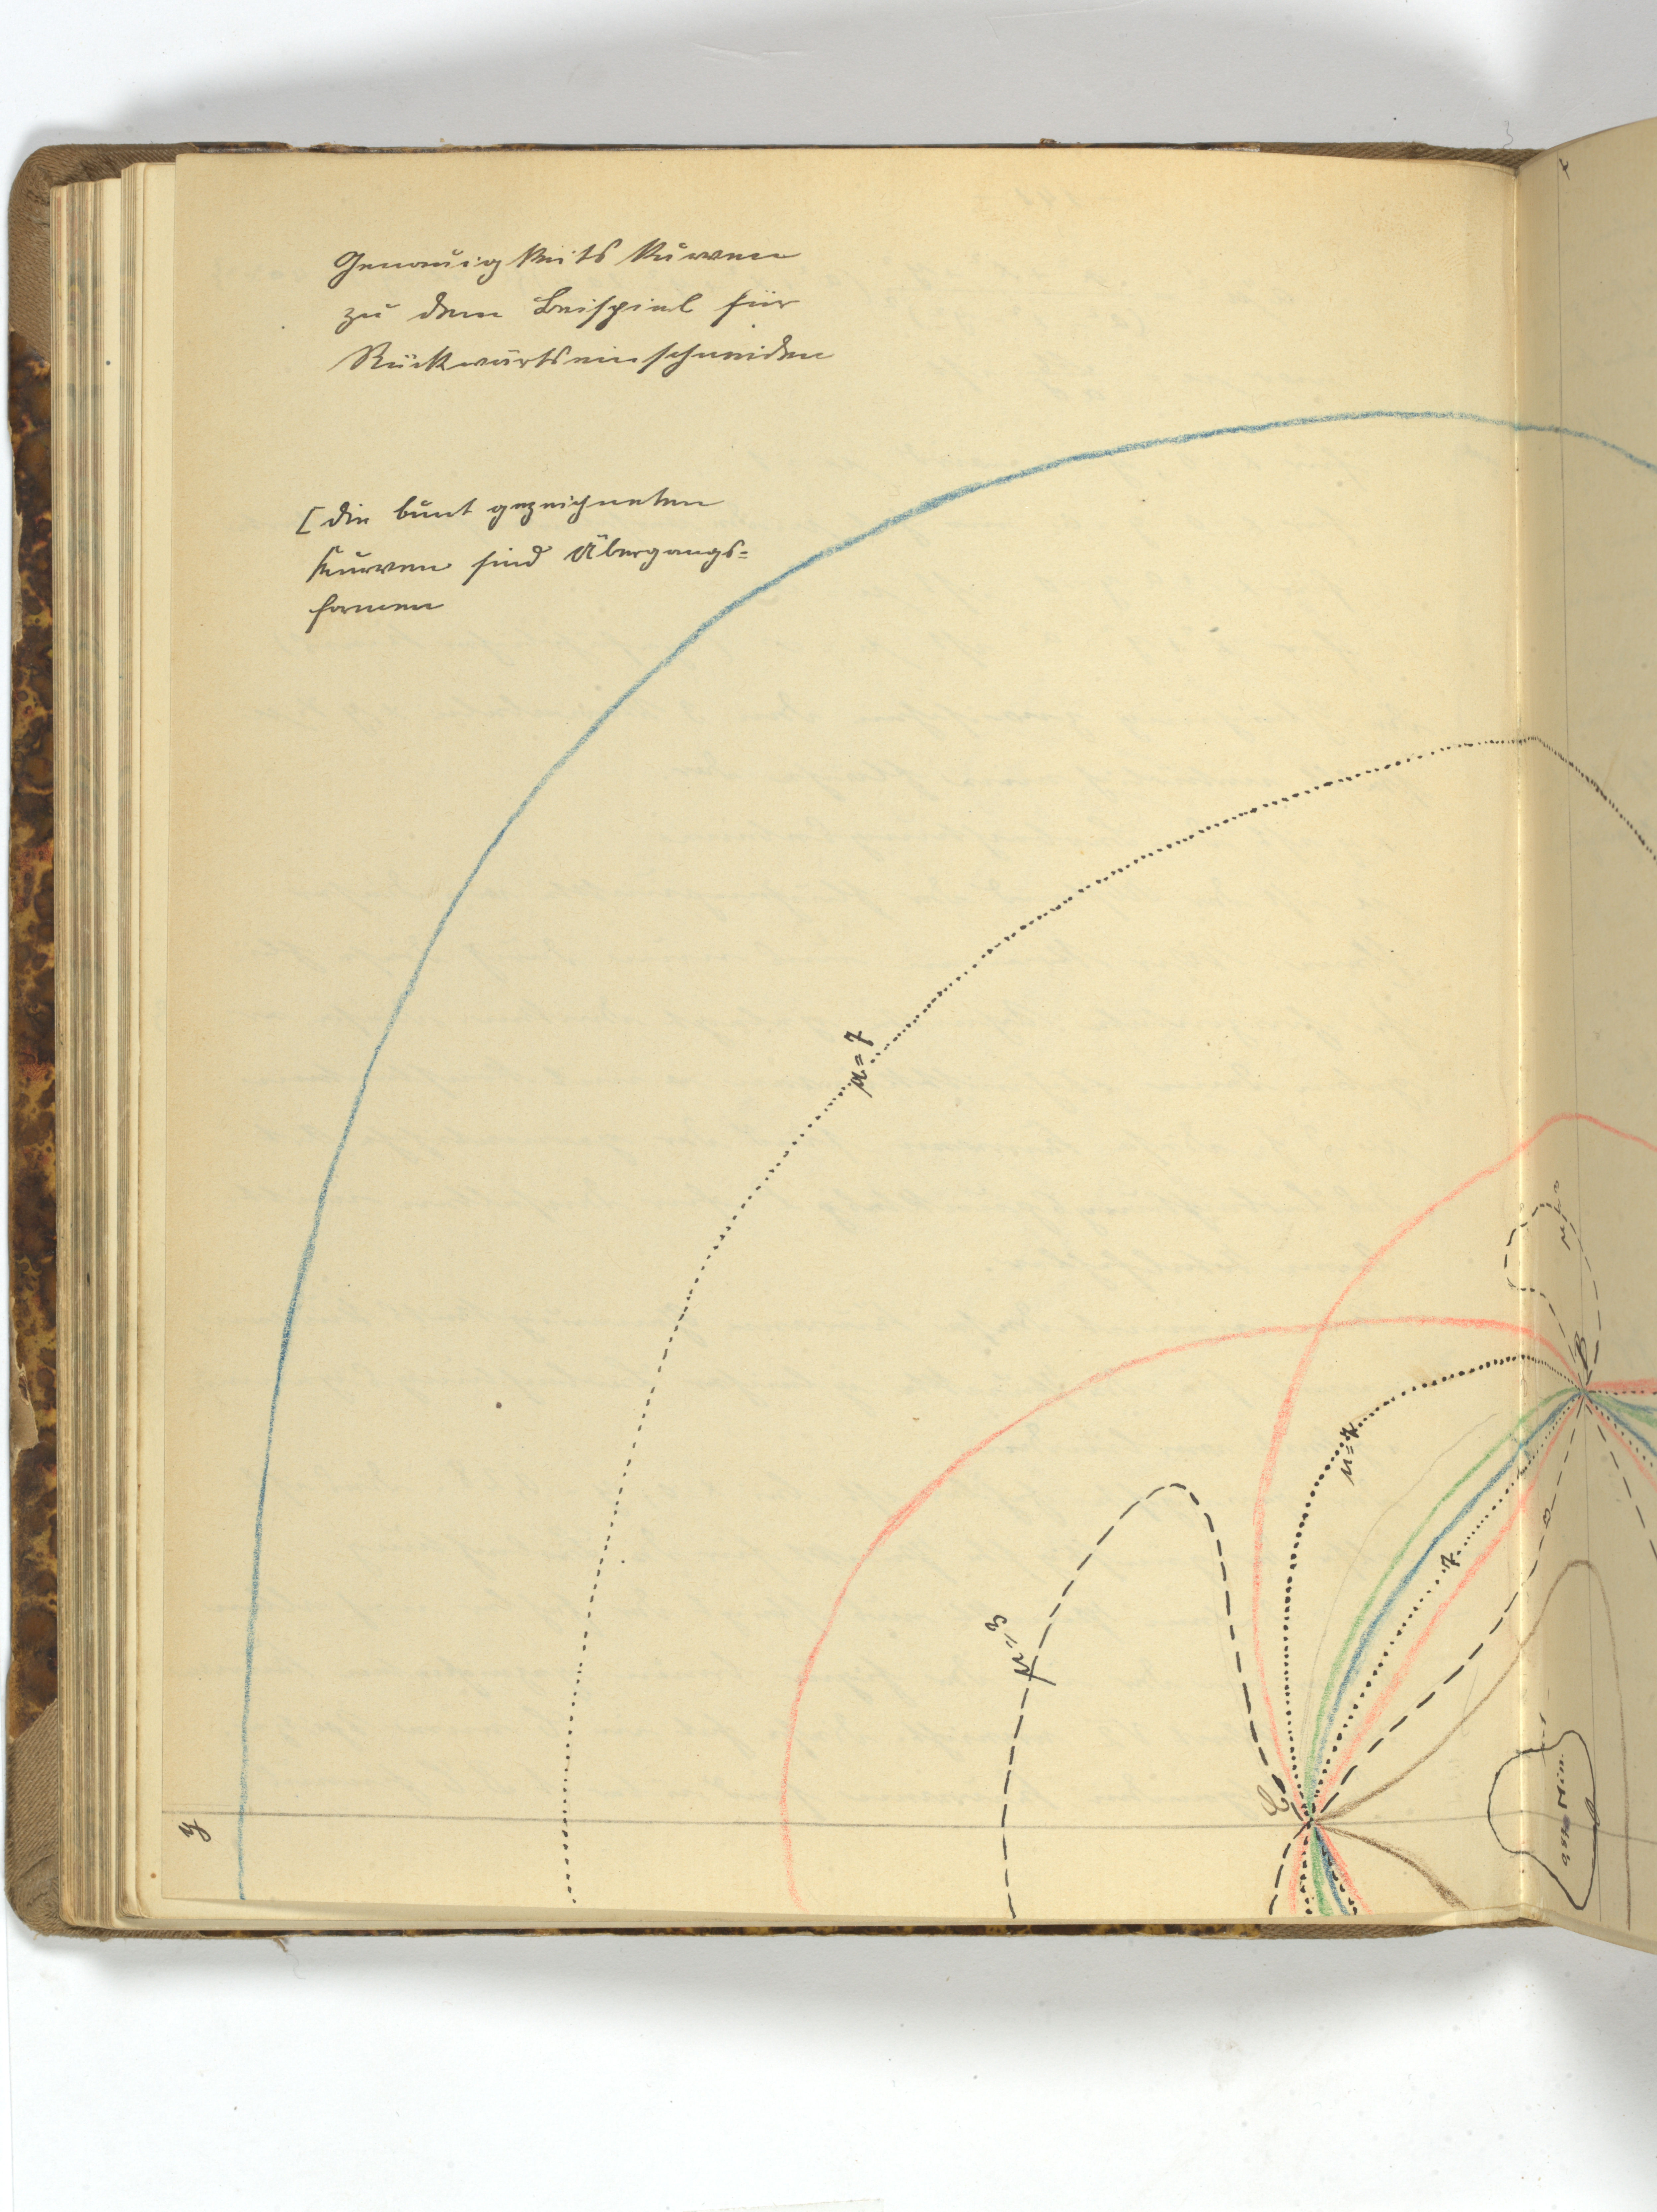 Genauigkeits Kurven
zu dem Beispiel für
Rückwärtseinschneiden
[die bunt gezeichneten
Kurven sind Übergangs=
formen
x
μ=7
μ=3
B
μ=7
3
7
μ=3
C
abs. Min.
y